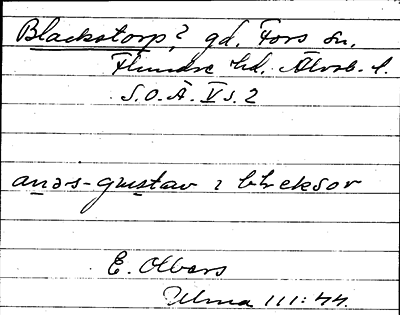 Blackstorp? gd. Fors sn,
Flundre hd. Älvsb. l.
S.O.Ä. V s. 2
anəs-gustav i
E. Olbers
Ulma 111:44.